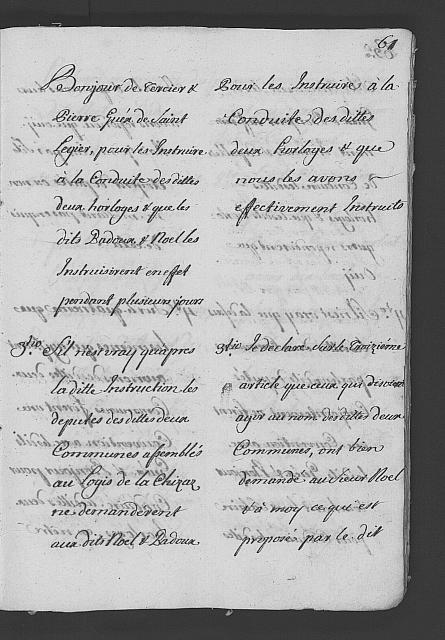 61
Bonjour de Tercier &
Pierre Guex de Saint
Legier, pour les Instruire
à la Conduite des dittes
deux horloges & que les
dits Padoux & Noel les
Instruisirent en effet
pendant plusieurs jours
3.tio S'il n'est vray qu'apres
la ditte Instruction les
deputés des dittes deux
Communes assemblés
au Logis de la Chizaz
ne demanderent
aux dits Noel & Padoux
Pour les Instruire à la
Conduite des dittes
deux horloges & que
nous les avons
effectivement Instruits
3.tio Je declare sur le Troizième
article que ceux qui disoient
agir au nom des dittes deux
Communes, ont bien
demandé au Sieur Noel
& à moy ce qui est
proposé par le dit